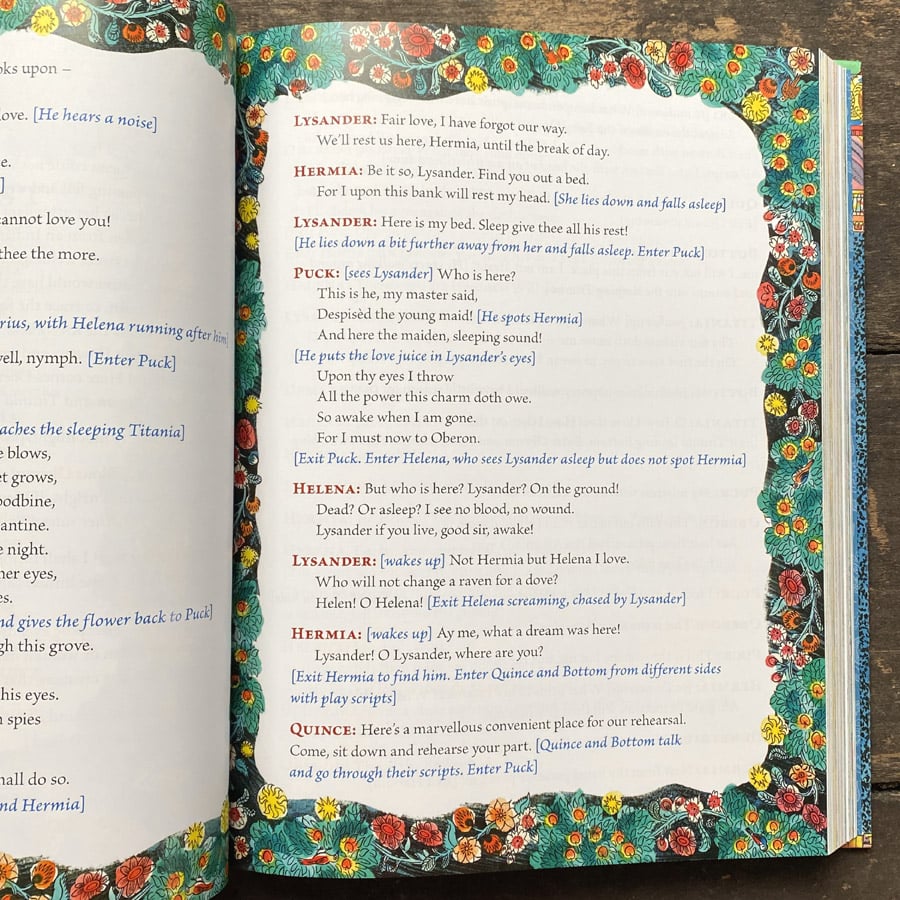 oks upon –
love. [He hears a noise]
e.
]
cannot love you!
thee the more.
rius, with Helena running after him]
well, nymph. [Enter Puck]
aches the sleeping Titania]
e blows,
et grows,
oodbine,
antine.
e night.
her eyes,
es.
nd gives the flower back to Puck]
gh this grove.
his eyes.
n spies
hall do so.
nd Hermia]
LYSANDER: Fair love, I have forgot our way.
We'll rest us here, Hermia, until the break of day.
HERMIA: Be it so, Lysander. Find you out a bed.
For I upon this bank will rest my head. [She lies down and falls asleep]
LYSANDER: Here is my bed. Sleep give thee all his rest!
[He lies down a bit further away from her and falls asleep. Enter Puck]
PUCK: [sees Lysander] Who is here?
This is he, my master said,
Despisèd the young maid! [He spots Hermia]
And here the maiden, sleeping sound!
[He puts the love juice in Lysander's eyes]
Upon thy eyes I throw
All the power this charm doth owe.
So awake when I am gone.
For I must now to Oberon.
[Exit Puck. Enter Helena, who sees Lysander asleep but does not spot Hermia]
HELENA: But who is here? Lysander? On the ground!
Dead? Or asleep? I see no blood, no wound.
Lysander if you live, good sir, awake!
LYSANDER: [wakes up] Not Hermia but Helena I love.
Who will not change a raven for a dove?
Helen! O Helena! [Exit Helena screaming, chased by Lysander]
HERMIA: [wakes up] Ay me, what a dream was here!
Lysander! O Lysander, where are you?
[Exit Hermia to find him. Enter Quince and Bottom from different sides
with play scripts]
QUINCE: Here's a marvellous convenient place for our rehearsal.
Come, sit down and rehearse your part. [Quince and Bottom talk
and go through their scripts. Enter Puck]